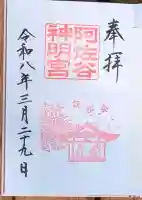 奉拝
阿佐谷
神明宮
令和八年三月二十九日